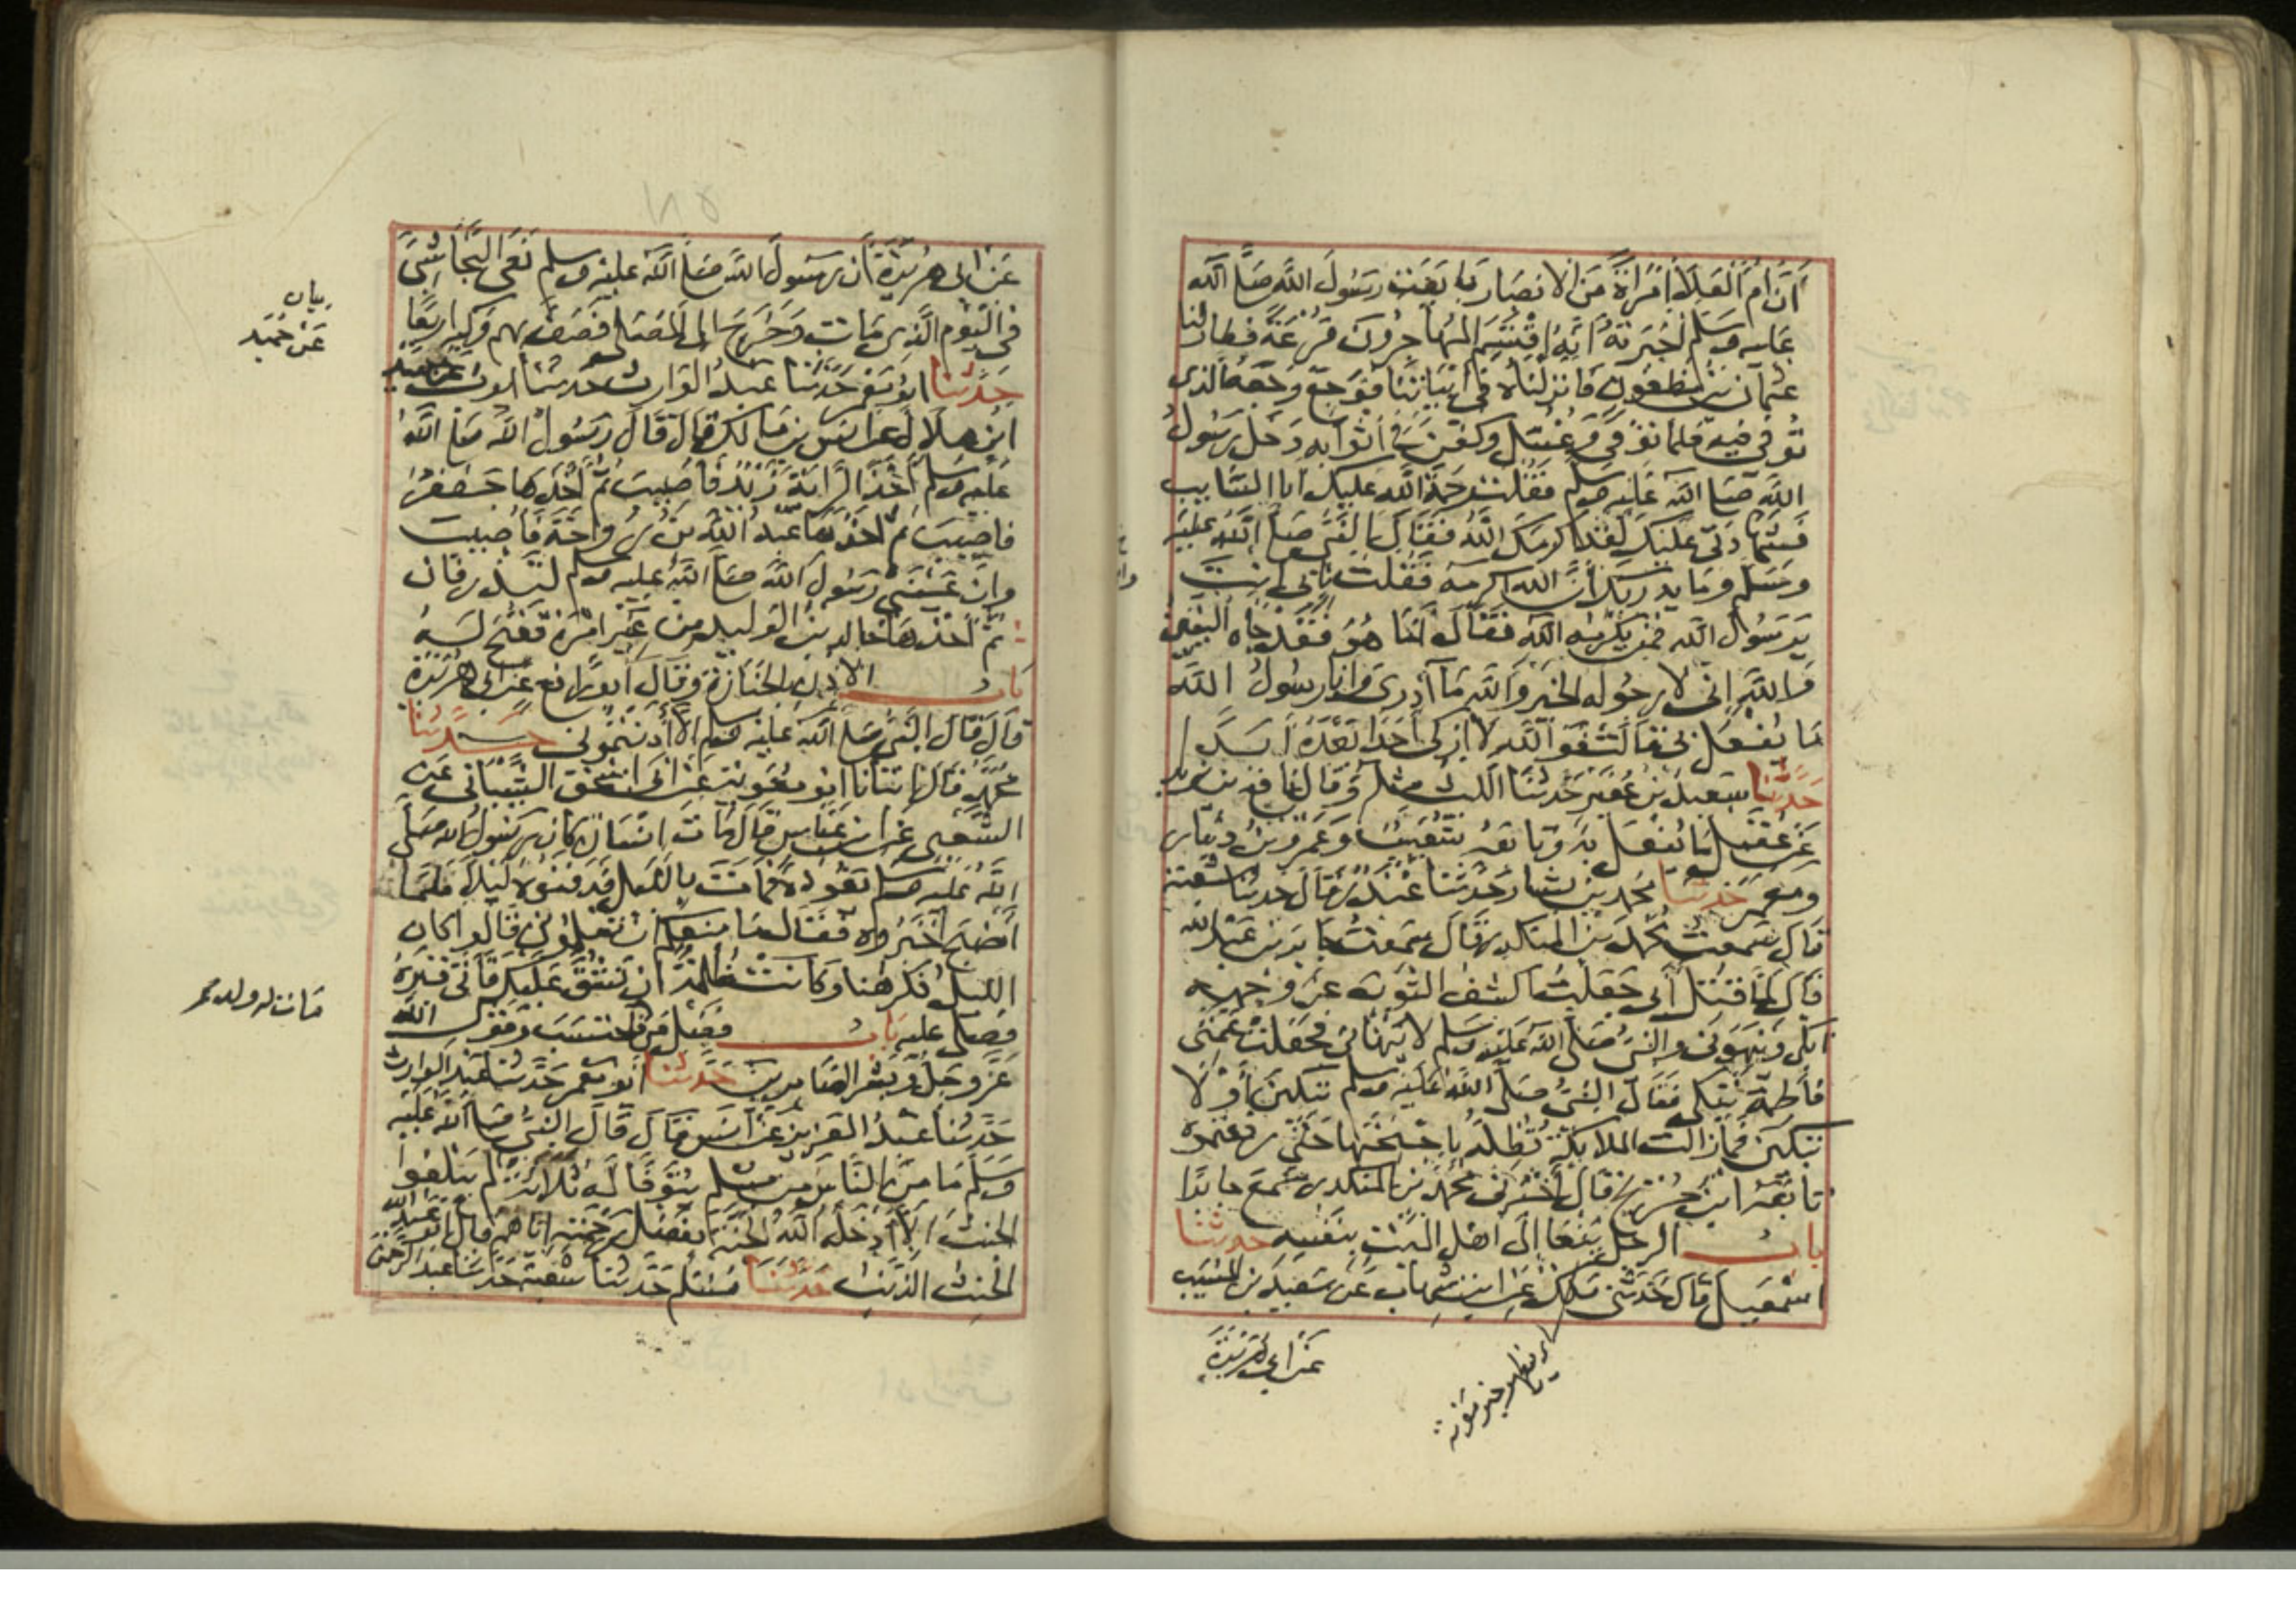 أن أم العلاء امرأة من الانصار بايعت رسول الله صلى الله
عليه وسلم اخبرته انه اقتسم المهاجرون قرعة فطار لنا
عثمان بن مظعون فانزلناه في ابياتنا فوجع وجعه الذى
توفى فيه فلما توفى وغسل وكفن في أثوابه دخل رسول
الله صلى الله عليه وسلم فقلت رحمة الله عليك ابا السايب
فشهادتى عليك لقد اكرمك الله فقال النبي صلى الله عليه
وسلم وما يدريك أن الله اكرمه فقلت بابى انت
يرسول الله فمن يكرمه الله فقال اما هو فقد جاه اليقين
والله انى لارجو له الخير والله ما أدرى وانا رسول الله
ما يفعل بى قالت فوالله لا ازكى احدا بعده ابدا
حدثنا سعيد بن عفير حدثنا الليث مثله وقال نافع بن يزيد
عن عقيل ما يفعل به وتابعه شعيب وعمرو بن دينار
ومعمر حدثنا محمد بن بشار حدثنا غندر قال حدثنا شعبة
قال سمعت محمد بن المنكدر قال سمعت جابر بن عبد الله
قال لما قتل أبى جعلت اكشف الثوب عن وجهه
ابكى وينهونى والنبى صلى الله عليه وسلم لا ينهانى فجعلت عمتى
فاطمة تبكى فقال النبى صلى الله عليه وسلم تبكين أو لا
تبكين فما زالت الملايكة تظله باجنحتها حتى رفعتموه
تابعه ابن جريج قال أخبرنى محمد بن المنكدر سمع جابرا
باب الرجل ينعا إلى اهل الميت بنفسه حدثنا
اسمعيل قال حدثنى مالك عن ابن شهاب عن سعيد بن المسيب
عن ابي هريرة
عن ابى هريرة أن رسول الله صلى الله عليه وسلم نعى النجاشى
فى اليوم الذى مات وخرج الى المصلى فصف بهم وكبر اربعا
حدثنا ابو معمر حدثنا عبد الوارث حدثنا ايوب عن حميد
ابن هلال عن انس بن مالك قال قال رسول الله صلى الله
عليه وسلم أخذ الراية زيد فأصيب ثم أخذها جعفر
فاصيب ثم اخذها عبد الله بن رواحة فأصيب
وان عينى رسول الله صلى الله عليه وسلم لتذرفان
ثم اخذها خالد بن الوليد من غير امرة ففتح له
باب الاذن بالجنازة وقال أبو رافع عن ابى هريرة
قال قال النبى صلى الله عليه وسلم الا أدنتمونى حدثنا
محمد قال انبانا ابو معوية عن ابى اسحق الشيبانى عن
الشعبى عن ابن عباس قال مات انسان كان رسول الله صلى
الله عليه وسلم يعوده فمات بالليل فدفنوه ليلا فلما
أصبح أخبروه فقال ما منعكم ان تعلمونى قالوا كان
الليل فكرهنا وكانت ظلمة ان نشق عليك فأتى قبره
فصلى عليه باب فضل من احتسب وقول الله
عز وجل وبشر الصابرين حدثنا أبو معمر حدثنا عبد الوارث
حدثنا عبد العزيز عن انس قال قال النبى صلى الله عليه
وسلم ما من الناس من مسلم يتوفا له ثلاثة لم يبلغوا
الحنث الا أدخله الله الجنة بفضل رحمته اياهم قال ابو عبد الله
الحنث الذنب حدثنا مسلم حدثنا شعبة حدثنا عبد الرحمن
عن حميد
مات له ولد